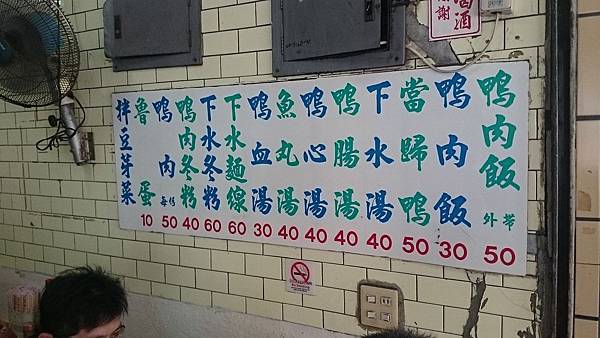 鴨肉飯 外帶 50
鴨肉飯 30
當歸鴨 50
下水湯 40
鴨腸湯 40
鴨心湯 40
魚丸湯 40
鴨血湯 30
下水麵線 60
下水冬粉 60
鴨肉冬粉 40
鴨肉 每份 50
魯蛋 10
拌豆芽菜
酒
謝